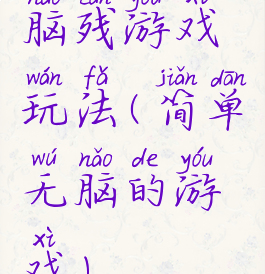 nǎo cán yóu xì
脑残游戏
wán fǎ jiǎn dān
玩法(简单
wú nǎo de yóu
无脑的游
xì
戏)